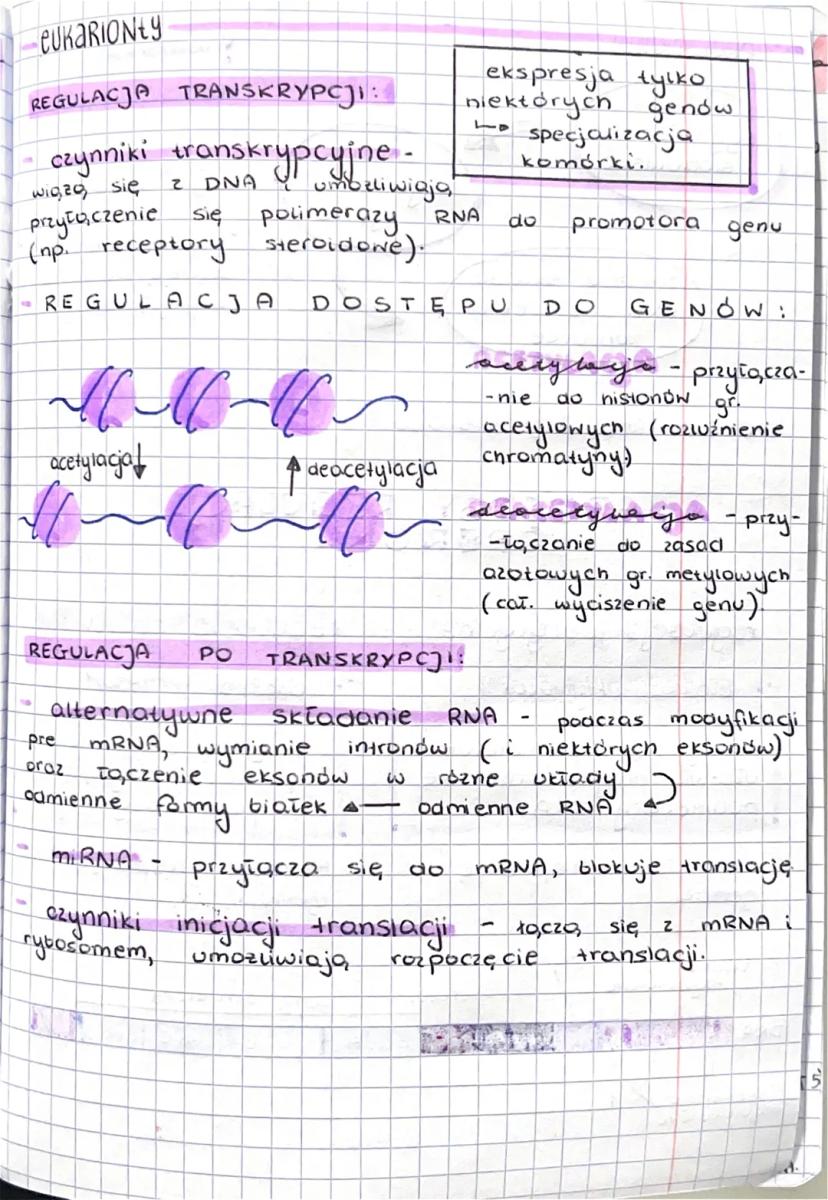 eukarionty
REGULACJA TRANSKRYPCJI:
ekspresja tylko
niektórych genów
↳ specjalizacja
komórki.
- czynniki transkrypcyjne -
wiążą się z DNA i umożliwiają
przyłączenie się polimerazy RNA do promotora genu
(np. receptory steroidowe).
- REGULACJA DOSTĘPU DO GENÓW:
acetylacja - przyłącza-
-nie do histonów gr.
acetylowych (rozluźnienie
chromatyny)
acetylacja↓ ↑ deacetylacja
deacetylacja - przy-
-łączanie do zasad
azotowych gr. metylowych
(cał. wyciszenie genu).
REGULACJA PO TRANSKRYPCJI:
- alternatywne składanie RNA - podczas modyfikacji
pre mRNA, wymianie intronów (i niektórych eksonów)
oraz łączenie eksonów w różne układy
odmienne formy białek ← odmienne RNA
- miRNA - przyłącza się do mRNA, blokuje translację
- czynniki inicjacji translacji - łączą się z mRNA i
rybosomem, umożliwiają rozpoczęcie translacji.
5